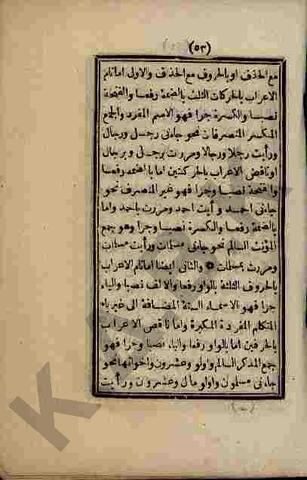 (٥٣)
مع الحذف او بالحروف مع الحذف والاولى اما تام
الاعراب بالحركات الثلث بالضمة رفعا والفتحة
نصبا والكسرة جرا فهو الاسم المفرد والجمع
المكسر المنصرفان نحو جاءنى رجل ورجال
ورأيت رجلا ورجالا ومررت برجل وبرجال
او ناقص الاعراب بالحركتين اما بالضمة رفعا
والفتحة نصبا وجرا فهو غير المنصرف نحو
جاءنى احمد ورأيت احمد ومررت باحمد واما
بالضمة رفعا والكسرة نصبا وجرا وهو جمع
المؤنث السالم نحو جاءنى مسلمات ورأيت مسلمات
ومررت بمسلمات والثانى ايضا اما تام الاعراب
بالحروف الثلثة بالواو رفعا والالف نصبا والياء
جرا فهو الاسماء الستة المضافة الى غير ياء
المتكلم المفردة المكبرة واما ناقص الاعراب
بالحرفين اما بالواو رفعا والياء نصبا وجرا فهو
جمع المذكر السالم واولو وعشرون واخواتها نحو
جاءنى مسلمون واولو مال وعشرون ورأيت